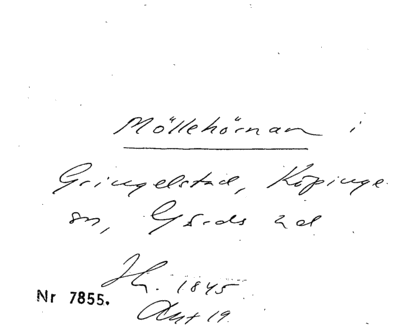 Möllehörnan i
Gringelstad, Köpinge
sn, Gärds hd
1845
Nr 7855.
Akt 19